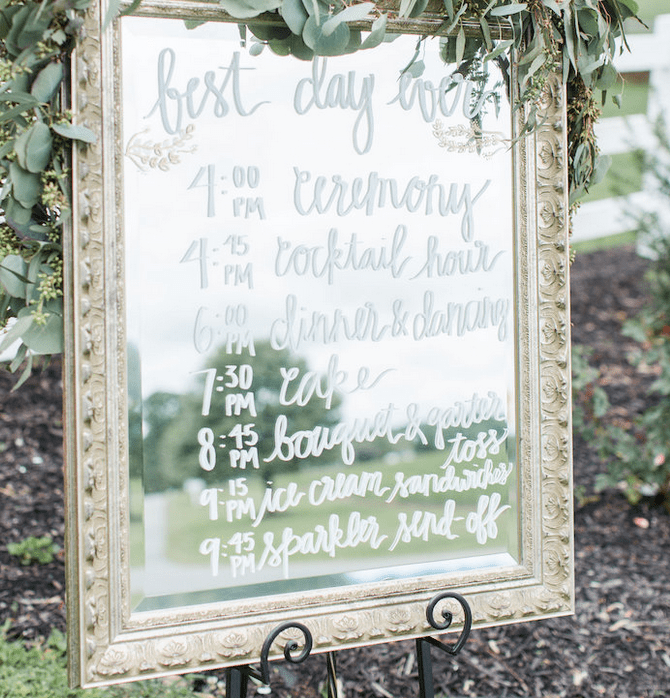 best day ever
4:00 PM Ceremony
4:45 PM Cocktail hour
6:00 PM dinner & dancing
7:30 PM Cake
8:45 PM bouquet & garter
toss
9:15 PM ice cream sandwiches
9:45 PM sparkler send-off